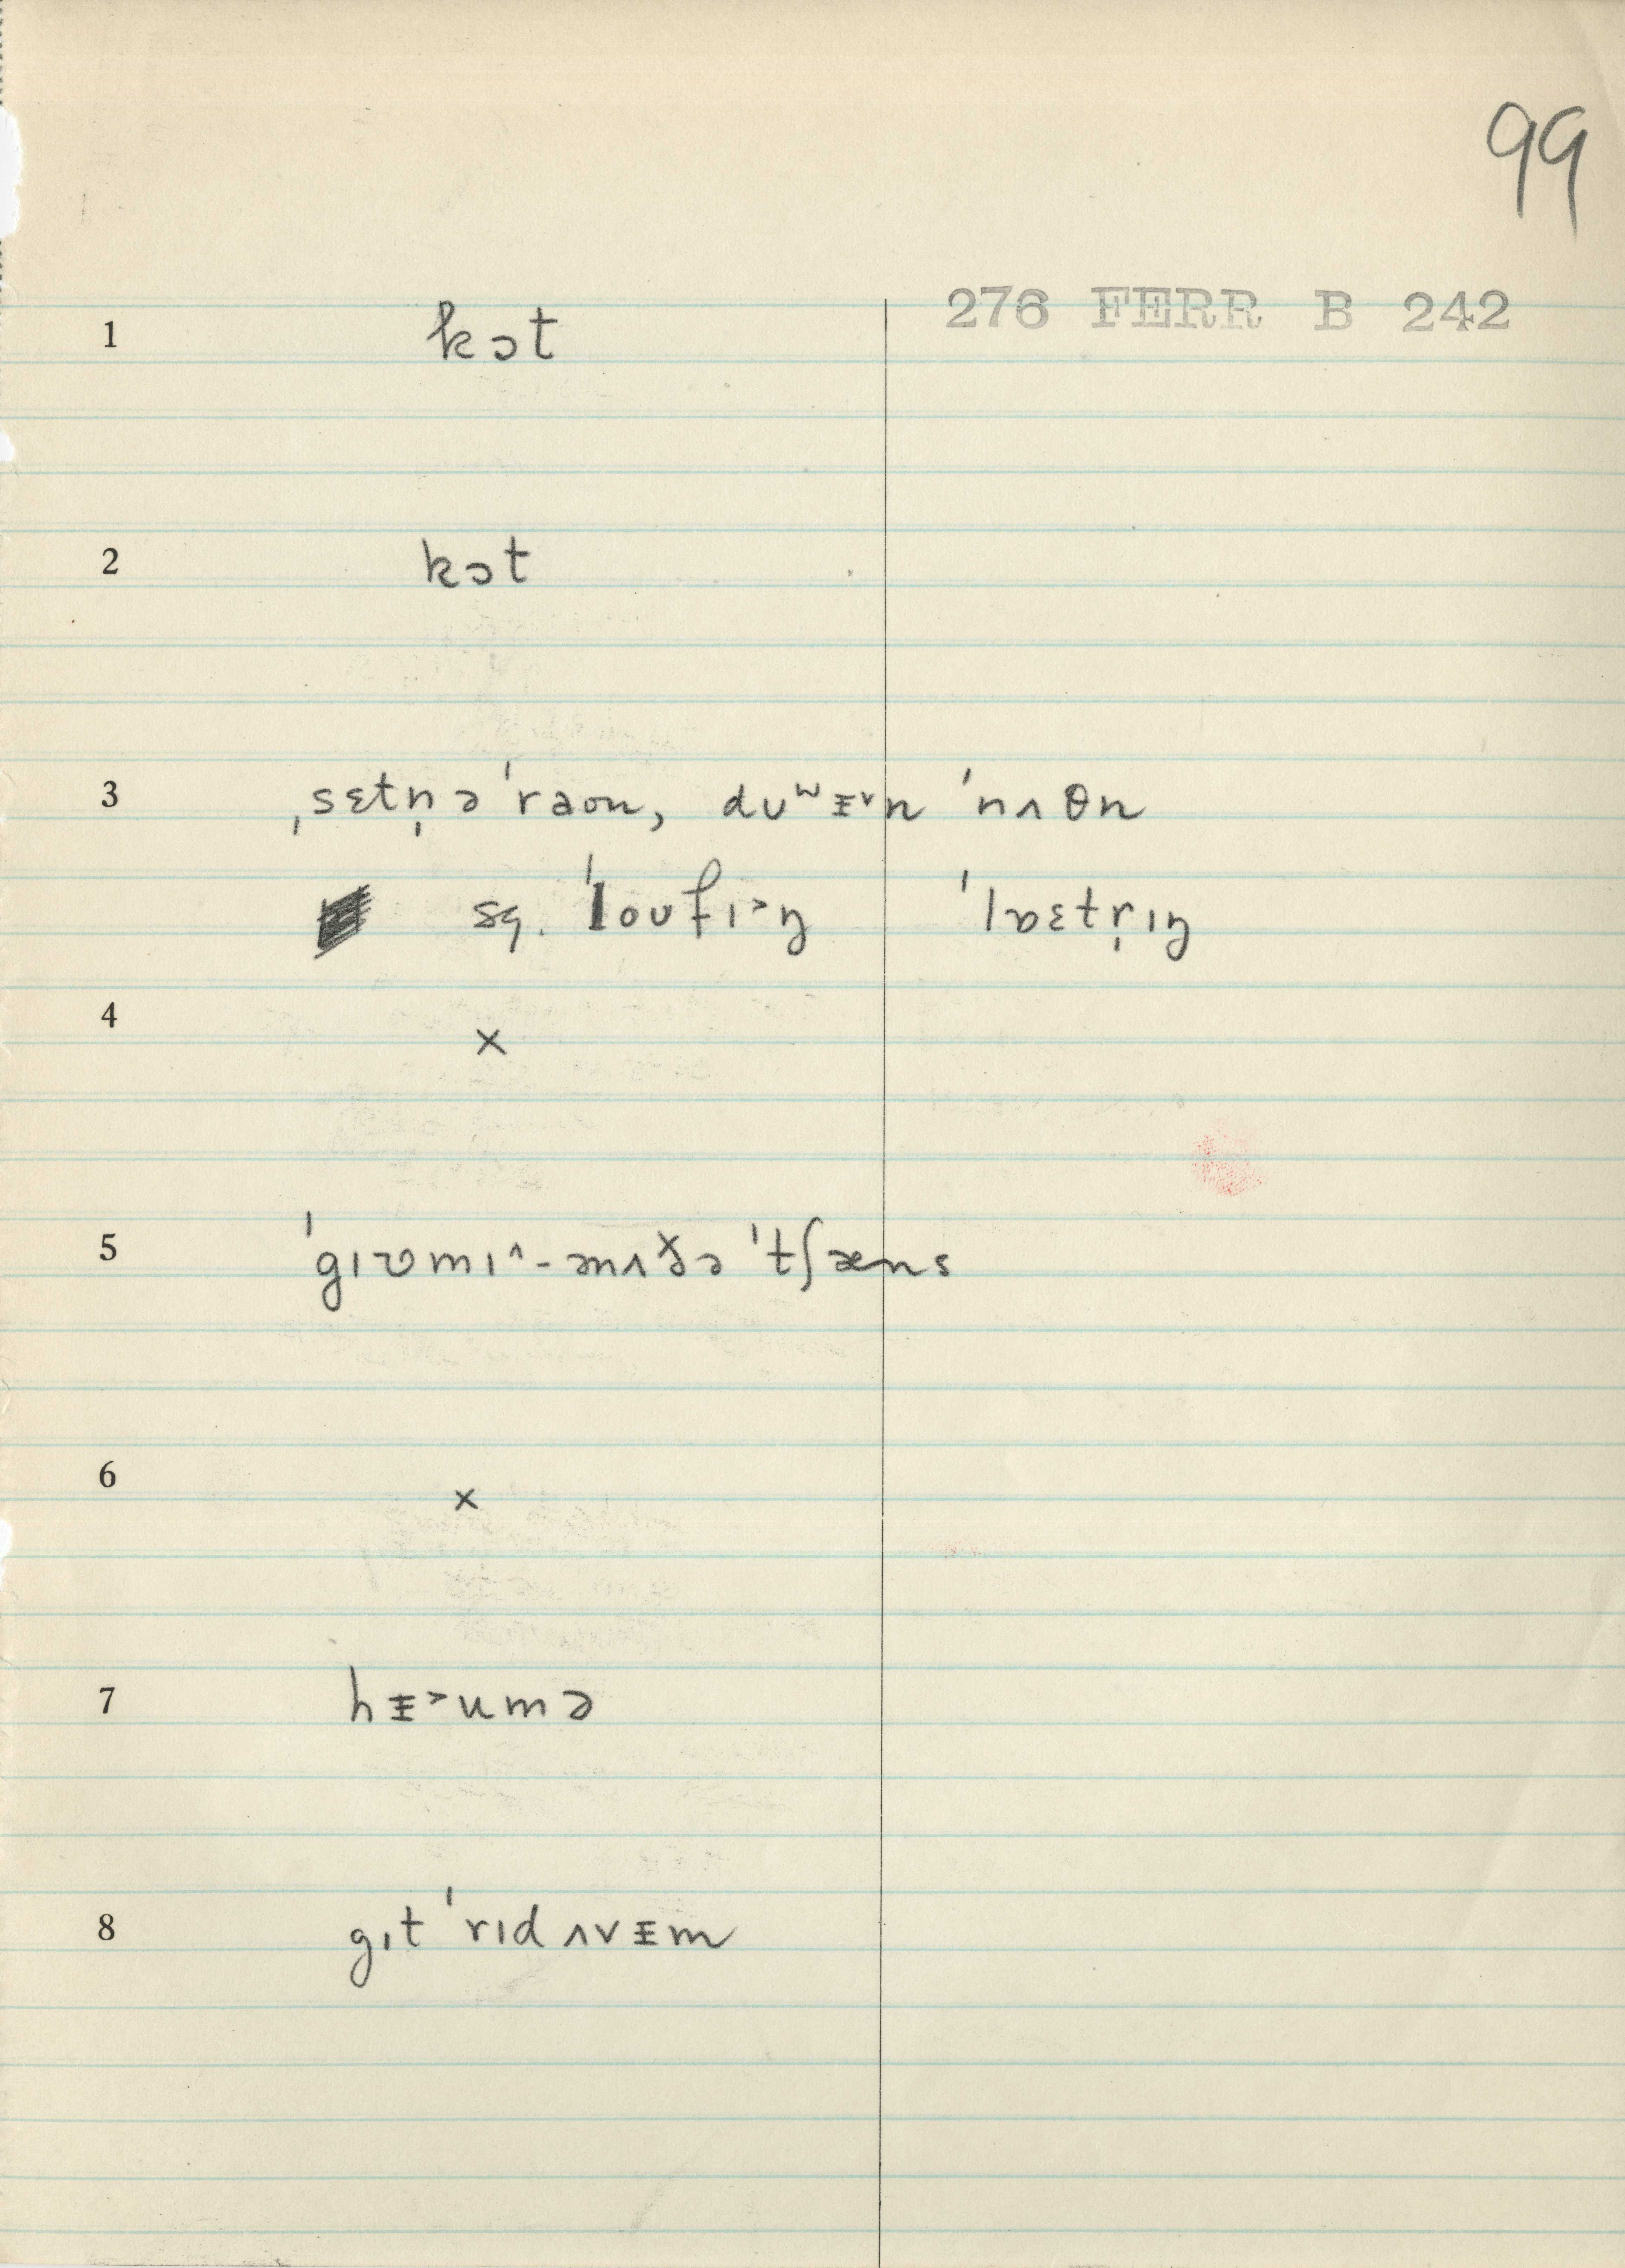 99
276 FERR B 242
1 kɔt
2 kɔt
3 ˌsɛtn̩ ə ˈraʊn, dʊʷᵻ˅n ˈnʌθn
sq. ˈloʊfɪ˃ŋ ˈlɒɛtr̩ɪŋ
4 ×
5 ˈgɪʊmɪ˄-ənʌðə ˈtʃæns
6 ×
7 hᵻ˃umə
8 gɪt ˈrɪd ʌvᵻm